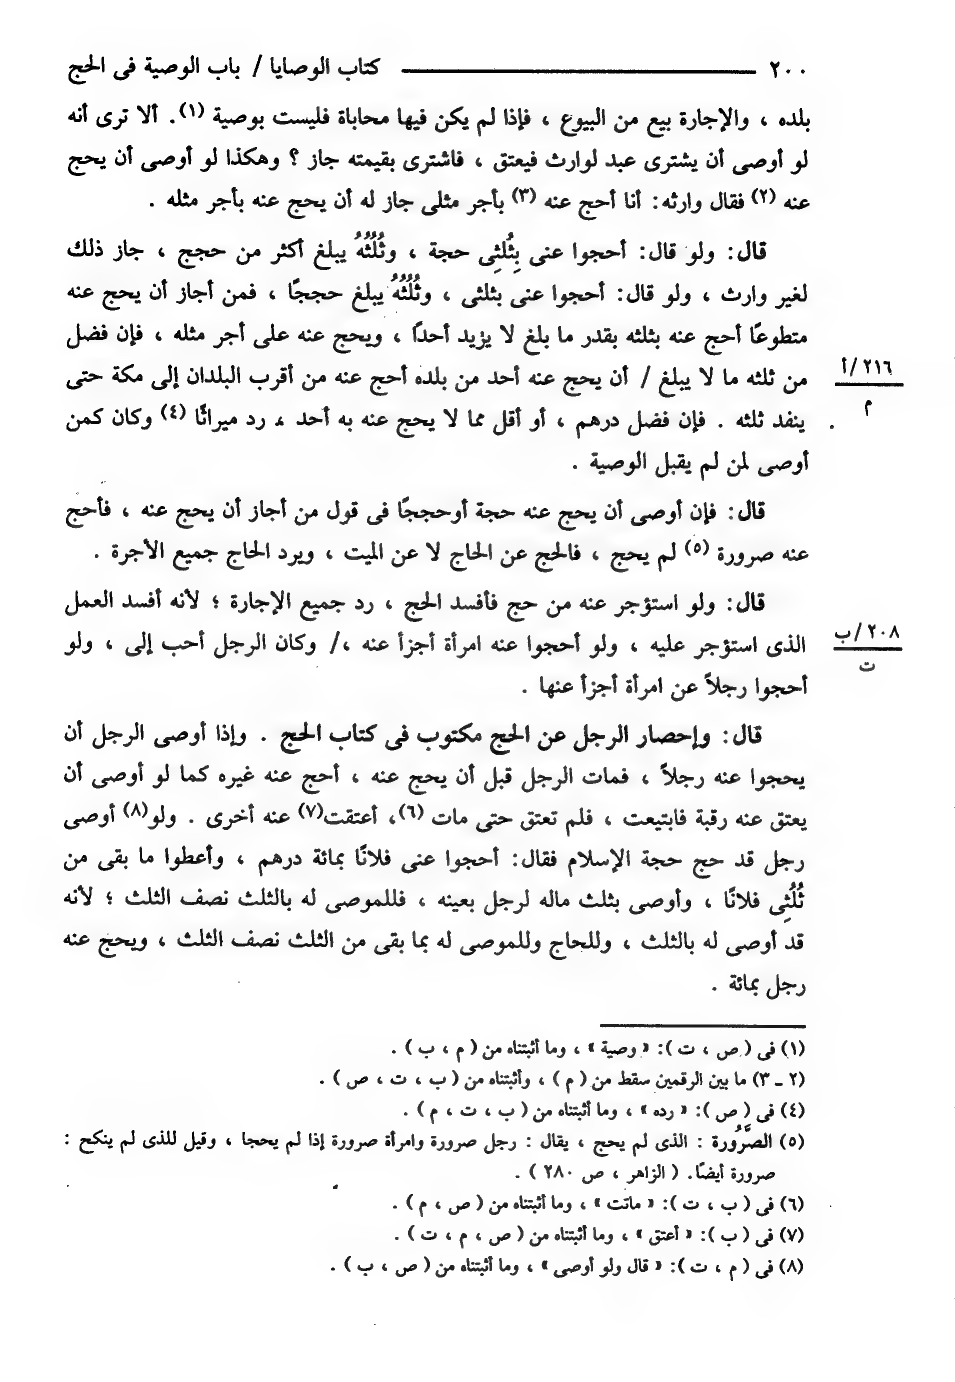 ٢٠٠ ــــــــــــــــــــ كتاب الوصايا / باب الوصية فى الحج
بلده ، والإجارة بيع من البيوع ، فإذا لم يكن فيها محاباة فليست بوصية (١). ألا ترى أنه
لو أوصى أن يشترى عبد لوارث فيعتق ، فاشترى بقيمته جاز ؟ وهكذا لو أوصى أن يحج
عنه (٢) فقال وارثه: أنا أحج عنه (٣) بأجر مثلى جاز له أن يحج عنه بأجر مثله .
قال: ولو قال: أحجوا عنى بِثُلثِى حجة ، وثُلُثُهُ يبلغ أكثر من حجج ، جاز ذلك
لغير وارث ، ولو قال: أحجوا عنى بثلثى ، وثُلُثُه يبلغ حججًا ، فمن أجاز أن يحج عنه
متطوعًا أحج عنه بثلثه بقدر ما بلغ لا يزيد أحدًا ، ويحج عنه على أجر مثله ، فإن فضل
من ثلثه ما لا يبلغ / أن يحج عنه أحد من بلده أحج عنه من أقرب البلدان إلى مكة حتى
٢١٦/أ
م
ينفد ثلثه . فإن فضل درهم ، أو أقل مما لا يحج عنه به أحد ، رد ميراثًا (٤) وكان كمن
أوصى لمن لم يقبل الوصية .
قال: فإن أوصى أن يحج عنه حجة أوحججًا فى قول من أجاز أن يحج عنه ، فأحج
عنه صرورة (٥) لم يحج ، فالحج عن الحاج لا عن الميت ، ويرد الحاج جميع الأجرة .
قال: ولو استؤجر عنه من حج فأفسد الحج ، رد جميع الإجارة ؛ لأنه أفسد العمل
الذى استؤجر عليه ، ولو أحجوا عنه امرأة أجزأ عنه ،/ وكان الرجل أحب إلى ، ولو
٢٠٨/ب
ت
أحجوا رجلاً عن امرأة أجزأ عنها .
قال: وإحصار الرجل عن الحج مكتوب فى كتاب الحج . وإذا أوصى الرجل أن
يحجوا عنه رجلاً ، فمات الرجل قبل أن يحج عنه ، أحج عنه غيره كما لو أوصى أن
يعتق عنه رقبة فابتيعت ، فلم تعتق حتى مات (٦)، أعتقت(٧) عنه أخرى . ولو(٨) أوصى
رجل قد حج حجة الإسلام فقال: أحجوا عنى فلانًا بمائة درهم ، وأعطوا ما بقى من
ثُلُثِى فلانًا ، وأوصى بثلث ماله لرجل بعينه ، فللموصى له بالثلث نصف الثلث ؛ لأنه
قد أوصى له بالثلث ، وللحاج وللموصى له بما بقى من الثلث نصف الثلث ، ويحج عنه
رجل بمائة .
(١) فى ( ص ، ت ): « وصية » ، وما أثبتناه من ( م ، ب ) .
(٢ ـ ٣) ما بين الرقمين سقط من ( م ) ، وأثبتناه من ( ب ، ت ، ص ) .
(٤) فى ( ص ): « رده » ، وما أثبتناه من ( ب ، ت ، م ) .
(٥) الصَّرُورة : الذى لم يحج ، يقال : رجل صرورة وامرأة صرورة إذا لم يحجا ، وقيل للذى لم ينكح :
صرورة أيضًا. ( الزاهر ، ص ٢٨٠ ) .
(٦) فى ( ب ، ت ): « ماتت » ، وما أثبتناه من ( ص ، م ) .
(٧) فى ( ب ): « أعتق » ، وما أثبتناه من ( ص ، م ، ت ) .
(٨) فى ( م ، ت ): « قال ولو أوصى » ، وما أثبتناه من ( ص ، ب ) .